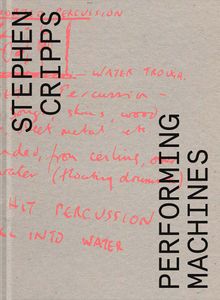 STEPHEN
CRIPPS
PERFORMING
MACHINES
PERCUSSION
WATER TROUGH.
Percussion -
skins, wood
metal etc
from ceiling, or
water (floating drums)
HIT PERCUSSION
INTO WATER